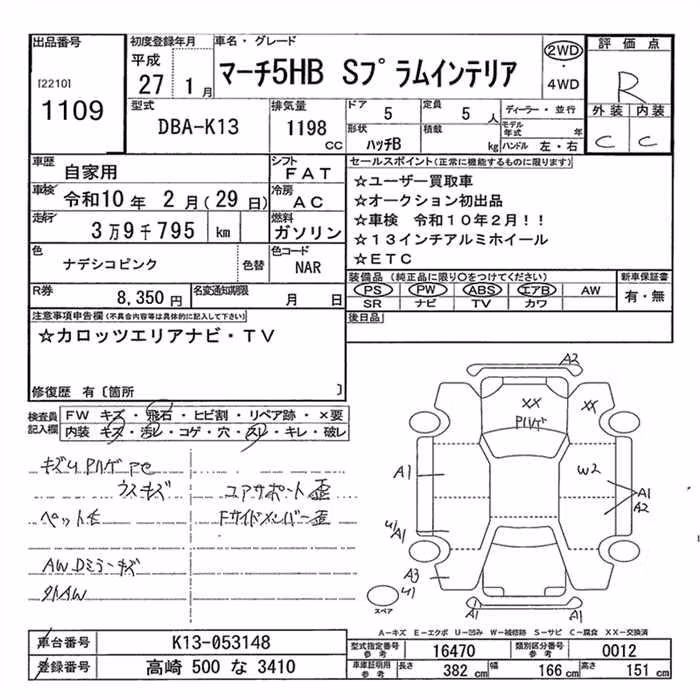 出品番号 初度登録年月 車名・グレード 2WD 評価点
[2210] 平成 マーチ5HB Sプラムインテリア ・ R
1109 27 1月 4WD
型式 排気量 ドア 5 定員 5人 ディーラー・並行 外装 内装
DBA-K13 1198 CC 形状 ハッチB 積載 kg モデル年式 年 C C
ハンドル 左・右
車歴 自家用 シフト FAT セールスポイント(正常に機能するものに限ります)
車検 令和10年 2月(29日) 冷房 AC ☆ユーザー買取車
☆オークション初出品
走行 3万9千795 km 燃料 ガソリン ☆車検 令和10年2月!!
☆13インチアルミホイール
色 ナデシコピンク 色替 色コード NAR ☆ETC
R券 8,350円 名変通知期限 月 日 装備品 (純正品に限り○をつけてください) 新車保証書
PS PW ABS エアB AW 有・無
SR ナビ TV カワ
注意事項申告欄(不具合内容等は具体的に記入して下さい) 後日品
☆カロッツエリアナビ・TV
修復歴 有〔箇所 〕
検査員記入欄 FW キズ・飛石・ヒビ割・リペア跡・×要
内装・キズ・汚レ・コゲ・穴・スレ・キレ・破レ
ウスキズ コアサポート歪
ペット毛 Fサイドメンバー歪
AW Dミラーキズ
外AW
A2
XX XX
P1ハゲ
A1 W2 A1
A2
U1
A1
A3 U1
A1 A1
スペア
A-キズ E-エクボ U-凹み W-補修跡 S-サビ C-腐食 XX-交換済
車台番号 K13-053148 型式指定番号 参考 16470 類別区分番号 参考 0012
登録番号 高崎 500 な 3410 車庫証明用 参考 長さ 382 cm 幅 166 cm 高さ 151 cm